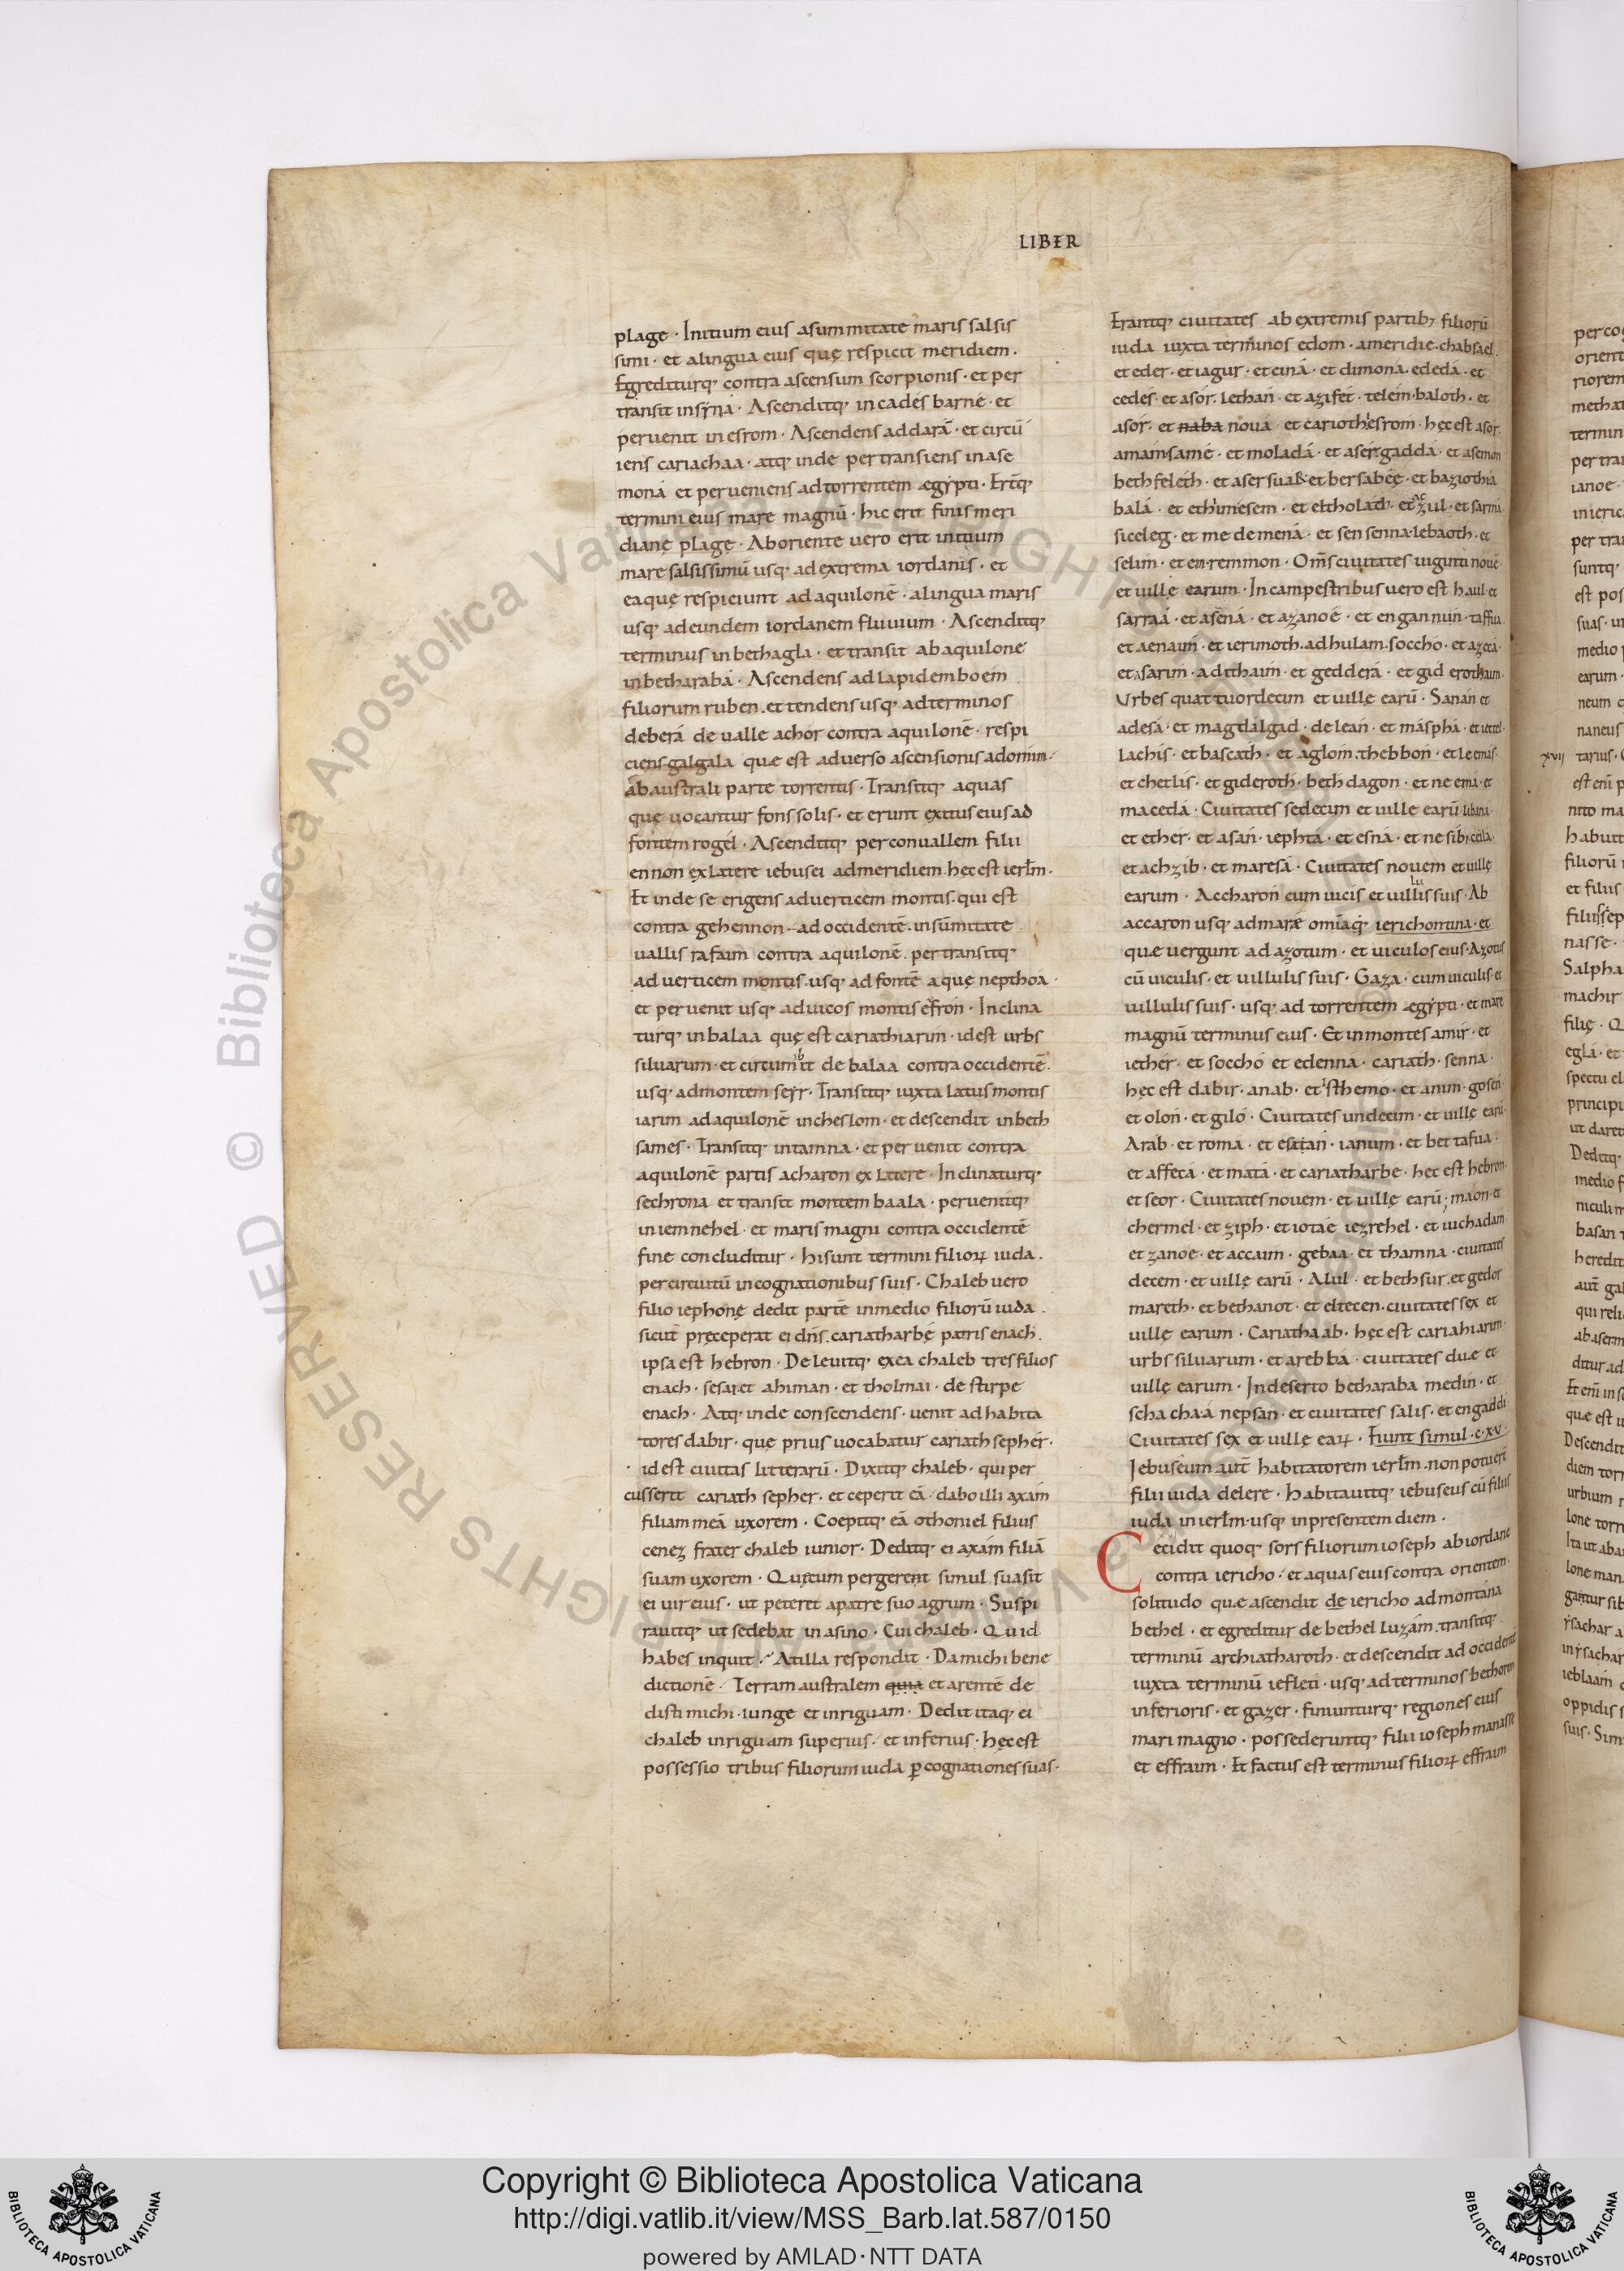 LIBER
plage · Initium eius asummitate maris salsis
simi · et alingua eius quę respicit meridiem ·
Egrediturq; contra ascensum scorpionis · et per
transit insýná · Ascenditq; in cadés barné · et
peruenit in esrom · Ascendens addarā · et circū
iens cariachaa · atq; inde per transiens inase
moná et perueniens adtorrentem ægýpti · Ertq̄;
termini eius mare magnū · hic erit finis meri
dianę plagę · Aboriente uero erit initium
mare salsissimū usq; ad extrema iordanis · et
eaquę respiciunt ad aquilonē · alingua maris
usq; adeundem iordanem fluuium · Ascenditq;
terminus in bethagla · et transit abaquilone
inbetharabá · Ascendens ad lapidem boém
filiorum ruben . et tendens usq; adterminos
deberá de ualle achór contra aquilonē · respi
ciens galgala quæ est aduerso ascensionis adomim ·
abaustrali parte torrentis · Transitq; aquas
quę uocantur fons solis · et erunt exitus eius ad
fontem rogél · Ascenditq; perconuallem filii
ennon exlatere iebusei admeridiem . hęc est ierlm̄ ·
Et inde se erigens aduerticem montis . qui est
contra gehennon adoccidentē . insūmitate
uallis rafaim contra aquilonē . per transitq;
ad uerticem montis . usq; ad fontē aquę nepthoa ·
et per uenit usq; aduicos montis efron · Inclina
turq; in balaa quę est cariathiarim · idest urbs
siluarum · et circumit de balaa contra occidentē .
usq; admontem seýr · Transitq; iuxta latus montis
iarim adaquilonē incheslom · et descendit inbeth
sames · Transitq; intamna · et per uenit contra
aquilonē partis acharon ex latere · Inclinaturq;
sechrona et transit montem baala · peruenitq;
iniemnehel · et maris magni contra occidentē
fine concluditur · hi sunt termini filioꝝ iuda .
percircuitū incognationibus suis · Chaleb uero
filio iephonę dedit partē inmedio filiorū iuda .
sicut pręceperat ei dn̄s . cariatharbé patris enach .
ipsa est hebron · Deleuitq; exea chaleb tres filios
enach · sesai et ahiman · et tholmai · de stirpe
enach · Atq; inde conscendens · uenit ad habita
tores dabir · quę prius uocabatur cariath sephér ·
· idest ciuitas litterarū · Dixitq; chaleb · qui per
cusserit cariath sepher · et ceperit eā · dabo illi axám
filiam meā uxorem · Coepitq; eā othoniel filius
cenez frater chaleb iunior · Deditq; ei axám filiā
suam uxorem · Quęcum pergerent simul suasit
ei uir eius · ut peteret apatre suo agrum · Suspi
rauitq; ut sedebat in asino · Cui chaleb · Quid
habes inquit · Atilla respondit · Da michi bene
dictionē · Terram australem quia et arentē de
disti michi · iunge et inriguam · Dedit itaq; ei
chaleb inriguam superius · et inferius · hęc est
possessio tribus filiorum iuda ꝑ cognationes suas ·
Erantq; ciuitates ab extremis partib; filiorū
iuda iuxta terminos edom · ameridie · chabsael .
et eder · et iagur · et ciná · et dimoná . ededá · et
cedés · et asór . lethan · et azifét · telém · baloth · et
asór . et naba nouá · et cariothesrom · hęc est asor .
amám · samé · et moladá · et asérgaddá · et asemon
beth feléth · et asersual · et bersabéę · et baziothia
balá · et ethimesem · et eltholath · et zul · et sarmi
siceleg · et me de mená · et sensenna · lebaoth · et
selim · et em·remmon · Om̄s ciuitates uiginti nouē ·
et uillę earum · In campestribus uero est haul · et
sarraá · et asená · et azanoé · et engannim · taffua
et aenaim · et ierimoth . adhulam . soccho · et azeca ·
et asarim · adithaim · et gedderá · et giderothaim ·
Urbes quattuordecim et uillę earū · Sanán et
adesá · et magdalgad · delean · et máspha · et iectel ·
Lachis · et bascath · et aglom . thebbon · et leemas ·
et chetlis · et gideroth · beth dagon · et ne emá · et
macedá · Ciuitates sedecim et uille earū libana ·
et ether · et asan · iephta · et esná · et nesib · ceila ·
et achzib · et maresá · Ciuitates nouem et uillę
earum · Accharon cum uicis et uillis suis · Ab
accaron usq; admare omiaq; ierichontina · et
quæ uergunt ad azotum · et uiculos eius · Azotus
cū uiculis · et uillulis suis · Gaza · cum uiculis · et
uillulis suis · usq; ad torrentem ægýpti · et mare
magnū terminus eius · Et inmontes amir · et
iethér · et socchó et edenna · cariath · senna ·
hęc est dabir · anab · et isthemo · et anim · gosen ·
et olon · et giló · Ciuitates undecim · et uillę earū ·
Arab · et roma · et esaan · ianum · et bettafua ·
et affecá · et matá · et cariatharbe · hęc est hebron ·
et seor · Ciuitates nouem · et uillę earū ; maon · et
chermel · et ziph · et iotae iezrehel · et iuchadam ·
et zanoe · et accaim · gebaa · et thamna · ciuitates
decem · et uillę earū · Alul · et beth sur . et gedor
mareth · et bethanot · et eltecen · ciuitates sex et
uillę earum · Cariathaab · hęc est cariahiarim ·
urbs siluarum · et arebbá · ciuitates duæ et
uillę earum · In deserto betharaba medin · et
schachaá nepsan · et ciuitates salis · et engaddi ·
Ciuitates sex et uillę eaꝝ · Fiunt simul · c · x · v ·
Jebuseum aut̄ habitatorem ierlm̄ · non potuert
filii iuda delere · habitauitq; iebuseus cū filiis
iuda inierlm̄ · usq; inpresentem diem ·
Cecidit quoq; sors filiorum ioseph abiordane
contra iericho · et aquas eius contra orientem ·
solitudo quæ ascendit de iericho admontana
bethel · et egreditur de bethel luzám . transitq;
terminū archiatharoth · et descendit ad occidentē
iuxta terminū iefleti · usq; adterminos bethoron
inferioris · et gazer · finiunturq; regiones eius
mari magno · possederuntq; filii ioseph manasse
et effraim · Et factus est terminus filioꝝ effraim
xvii
Copyright © Biblioteca Apostolica Vaticana
http://digi.vatlib.it/view/MSS_Barb.lat.587/0150
powered by AMLAD·NTT DATA
BIBLIOTECA APOSTOLICA VATICANA
BIBLIOTECA APOSTOLICA VATICANA
© Biblioteca Apostolica Vaticana ALL RIGHTS RESERVED